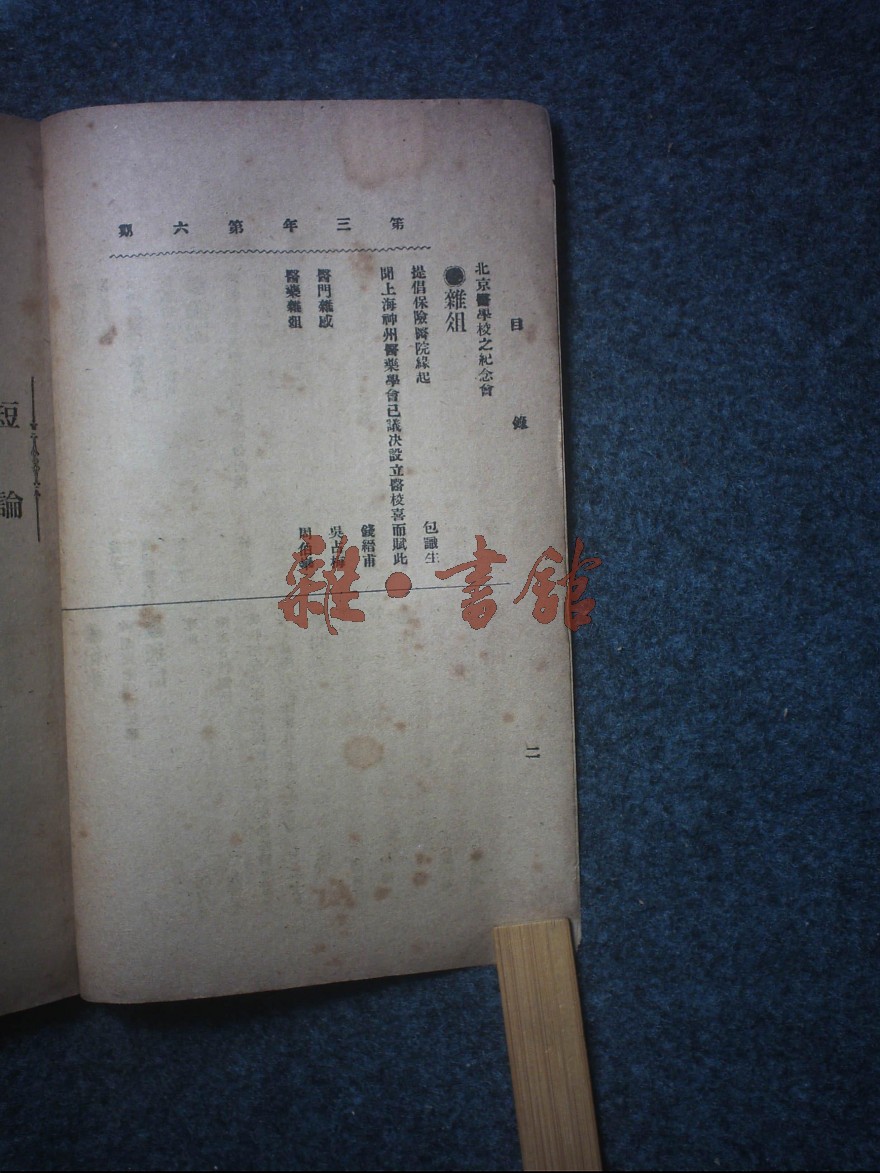 第三年第六期
目錄
二
北京醫學校之紀念會
雜俎
提倡保險醫院緣起
包識生
聞上海神州醫藥學會已議決設立醫校喜而賦此
錢縉甫
醫門雜感
吳占梅
醫藥雜俎
周伯
短論
雜·書館